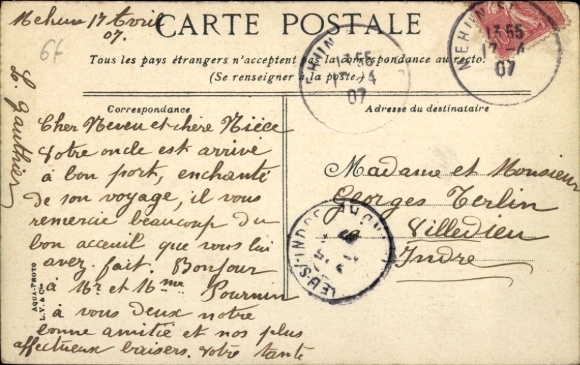 Mehun 17 Avril
07.
67
CARTE POSTALE
Tous les pays étrangers n'acceptent pas la correspondance au recto.
(Se renseigner à la poste.)
MEHUN
13 55
17 -4
07
MEHUN
13 55
17 -4
07
Correspondance
Cher Neveu et chère Nièce
Votre oncle est arrivé
à bon port, enchanté
de son voyage, il vous
remercie beaucoup du
bon acceuil que vous lui
avez fait. Bonjour
à Mr et Mme Pournin
à vous deux notre
bonne amitié et nos plus
affectueux baisers. Votre tante
L. Gauthier
Adresse du destinataire
Madame et Monsieur
Georges Terlin
Villedieu
Indre
INDRE
AQUA-PHOTO
L.V. & Cie